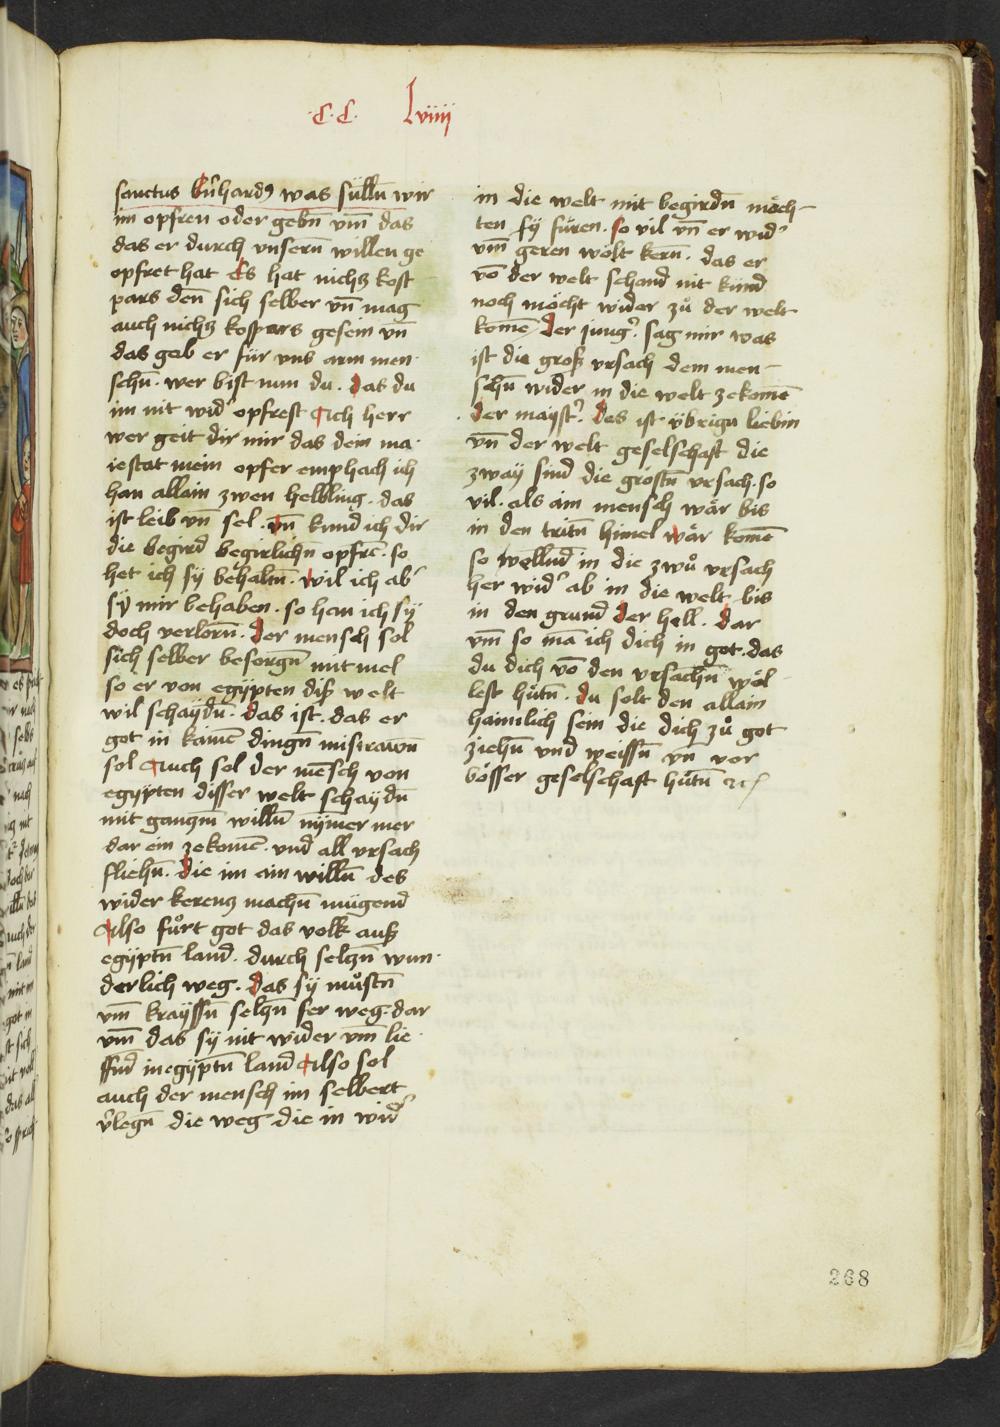 ·C·C· Lviiij
sanctus Bn̄hardꝰ was sülln̄ wir
im opfren oder gebn̄ vm̄ das
das er durch vnsern̄ willen ge
opfret hat Es hat nichʒ kost
pars den̄ sich selber vn̄ mag
auch nichʒ kospars gesein vn̄
das gab er für vns arm men·
schn̄· wer bist nun du· das du
im nit wid' opfrest Ach herr
wer geit dir mir das dein ma·
iestat mein opfer emphach ich
han allain zwen helbling· das
ist leib vn̄ sel· vn̄ kund ich dir
die begird begirlichn̄ opfrē· so
het ich sÿ behaltn̄· wil ich ab'
sÿ mir behaben· so han ich sÿ
doch verlorn̄· der mensch sol
sich selber besorgn̄ mit mel
so er von egÿpten diß welt
wil schaÿdn̄· das ist· das er
got in kainē dingn̄ mistrawn̄
sol Auch sol der mēsch von
egÿpten disser welt schaÿdn̄
mit ganʒm̄ willn̄ nÿmer mer
dar ein zekomē· vnd all vrsach
fliehn̄· die im ain willn̄ des
wider kerenʒ machn̄ mügend
Also fůrt got das volk auß
egÿptn̄ land· durch selʒn̄ wun·
derlich weg· das sÿ můstn̄
vm̄ kraÿssn̄ selʒn̄ fer weg· dar
vm̄ das sÿ nit wider vm̄ lie·
ffnd in egÿptn̄ land Also sol
auch der mensch im selbert
v'legn̄ die weg die in wid'
in die welt mit begirdn̄ möch-
ten fÿ füren· so vil vn̄ er wid'
vm̄ geren wölt kern̄· das er
vō der welt schand nit kund
noch möcht wider zů der welt
komē Der jung'· sag mir was
ist die groß vrsach dem men-
schn̄ wider in die welt zekomē
Der maÿst'· des ist übrigu liebin
vn̄ der welt geselschaft die
zwaÿ sind die gröstn̄ vrsach· so
vil· als ain mensch wär bis
in den tritn̄ himel wär komē
so wellnd in die zwů vrsach
her wid' ab in die welt bis
in den grund der hell· dar
vm̄ so mā ich dich in got· das
du dich vō den vrsachn̄ wöl
lest hütn̄· du solt den allain
haimlich sein die dich zů got
ziehn̄ vnd weissn̄ vn̄ vor
bösser geselschaft hütn̄ ꝛc
268